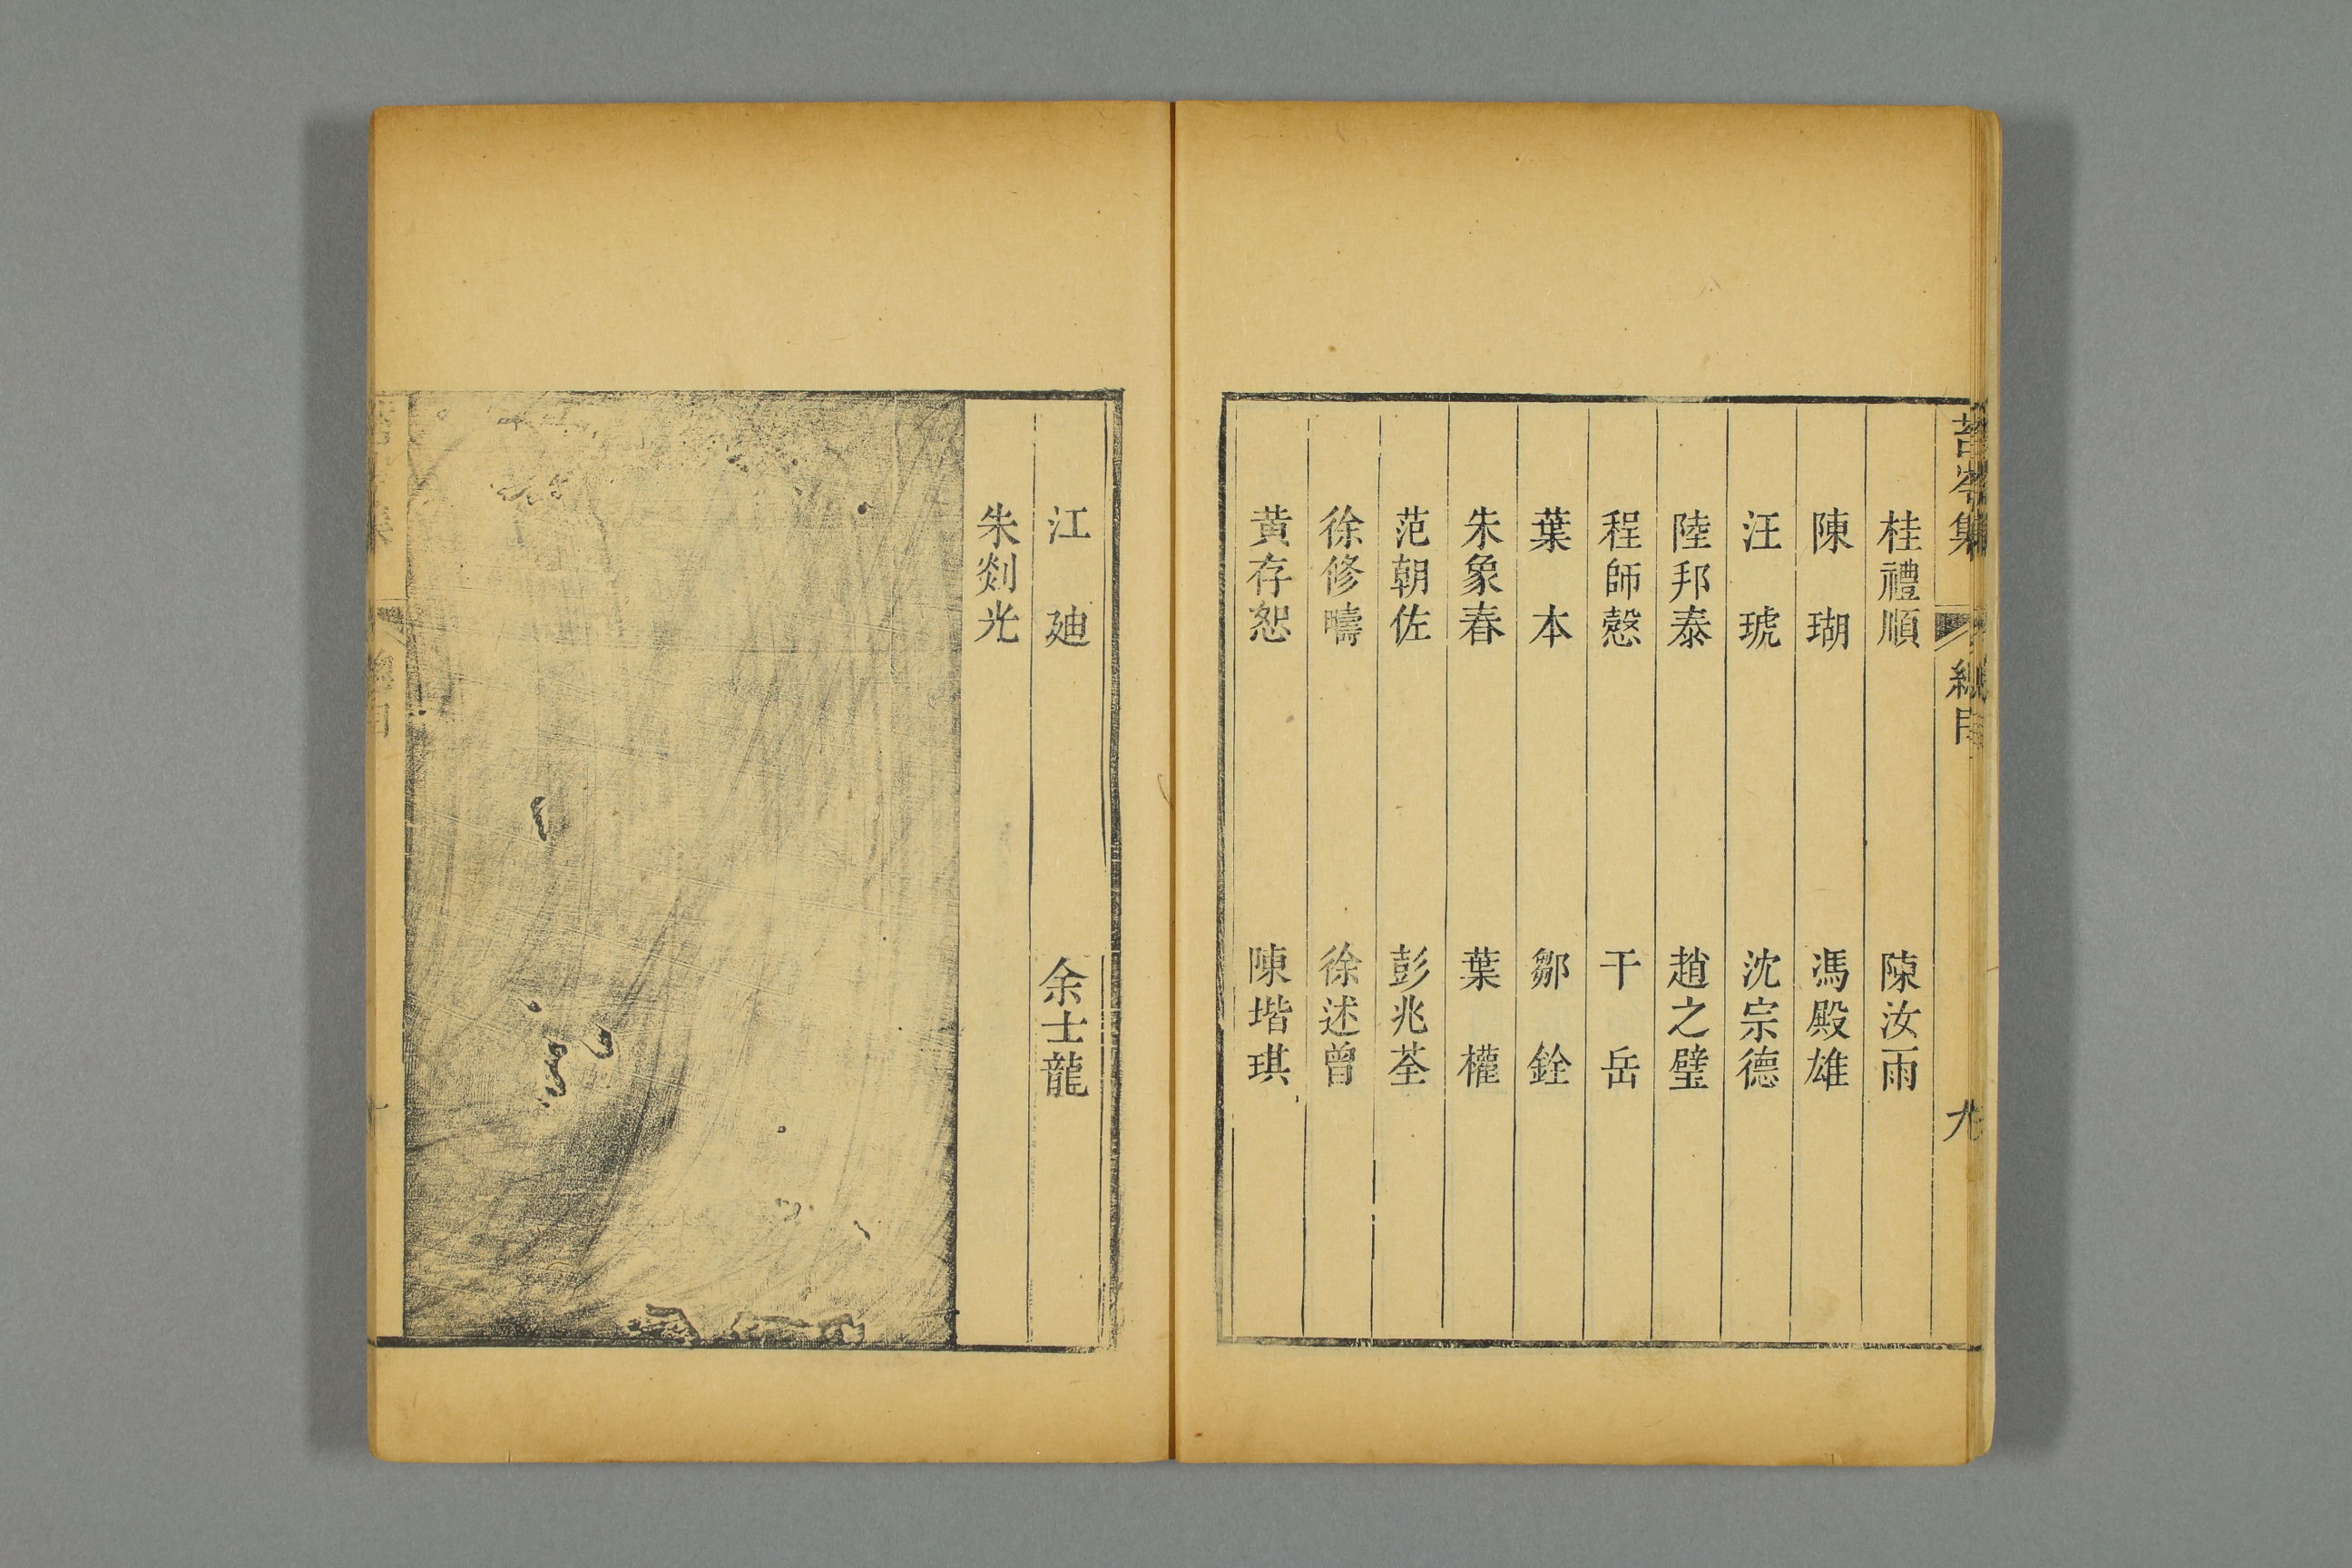 苔岑集 總目 九
桂禮順 陳汝雨
陳瑚 馮殿雄
汪琥 沈宗德
陸邦泰 趙之璧
程師愨 干岳
葉本 鄒銓
朱象春 葉權
范朝佐 彭兆荃
徐修疇 徐述曾
黄存恕 陳堦琪
江廸 余士龍
朱剡光